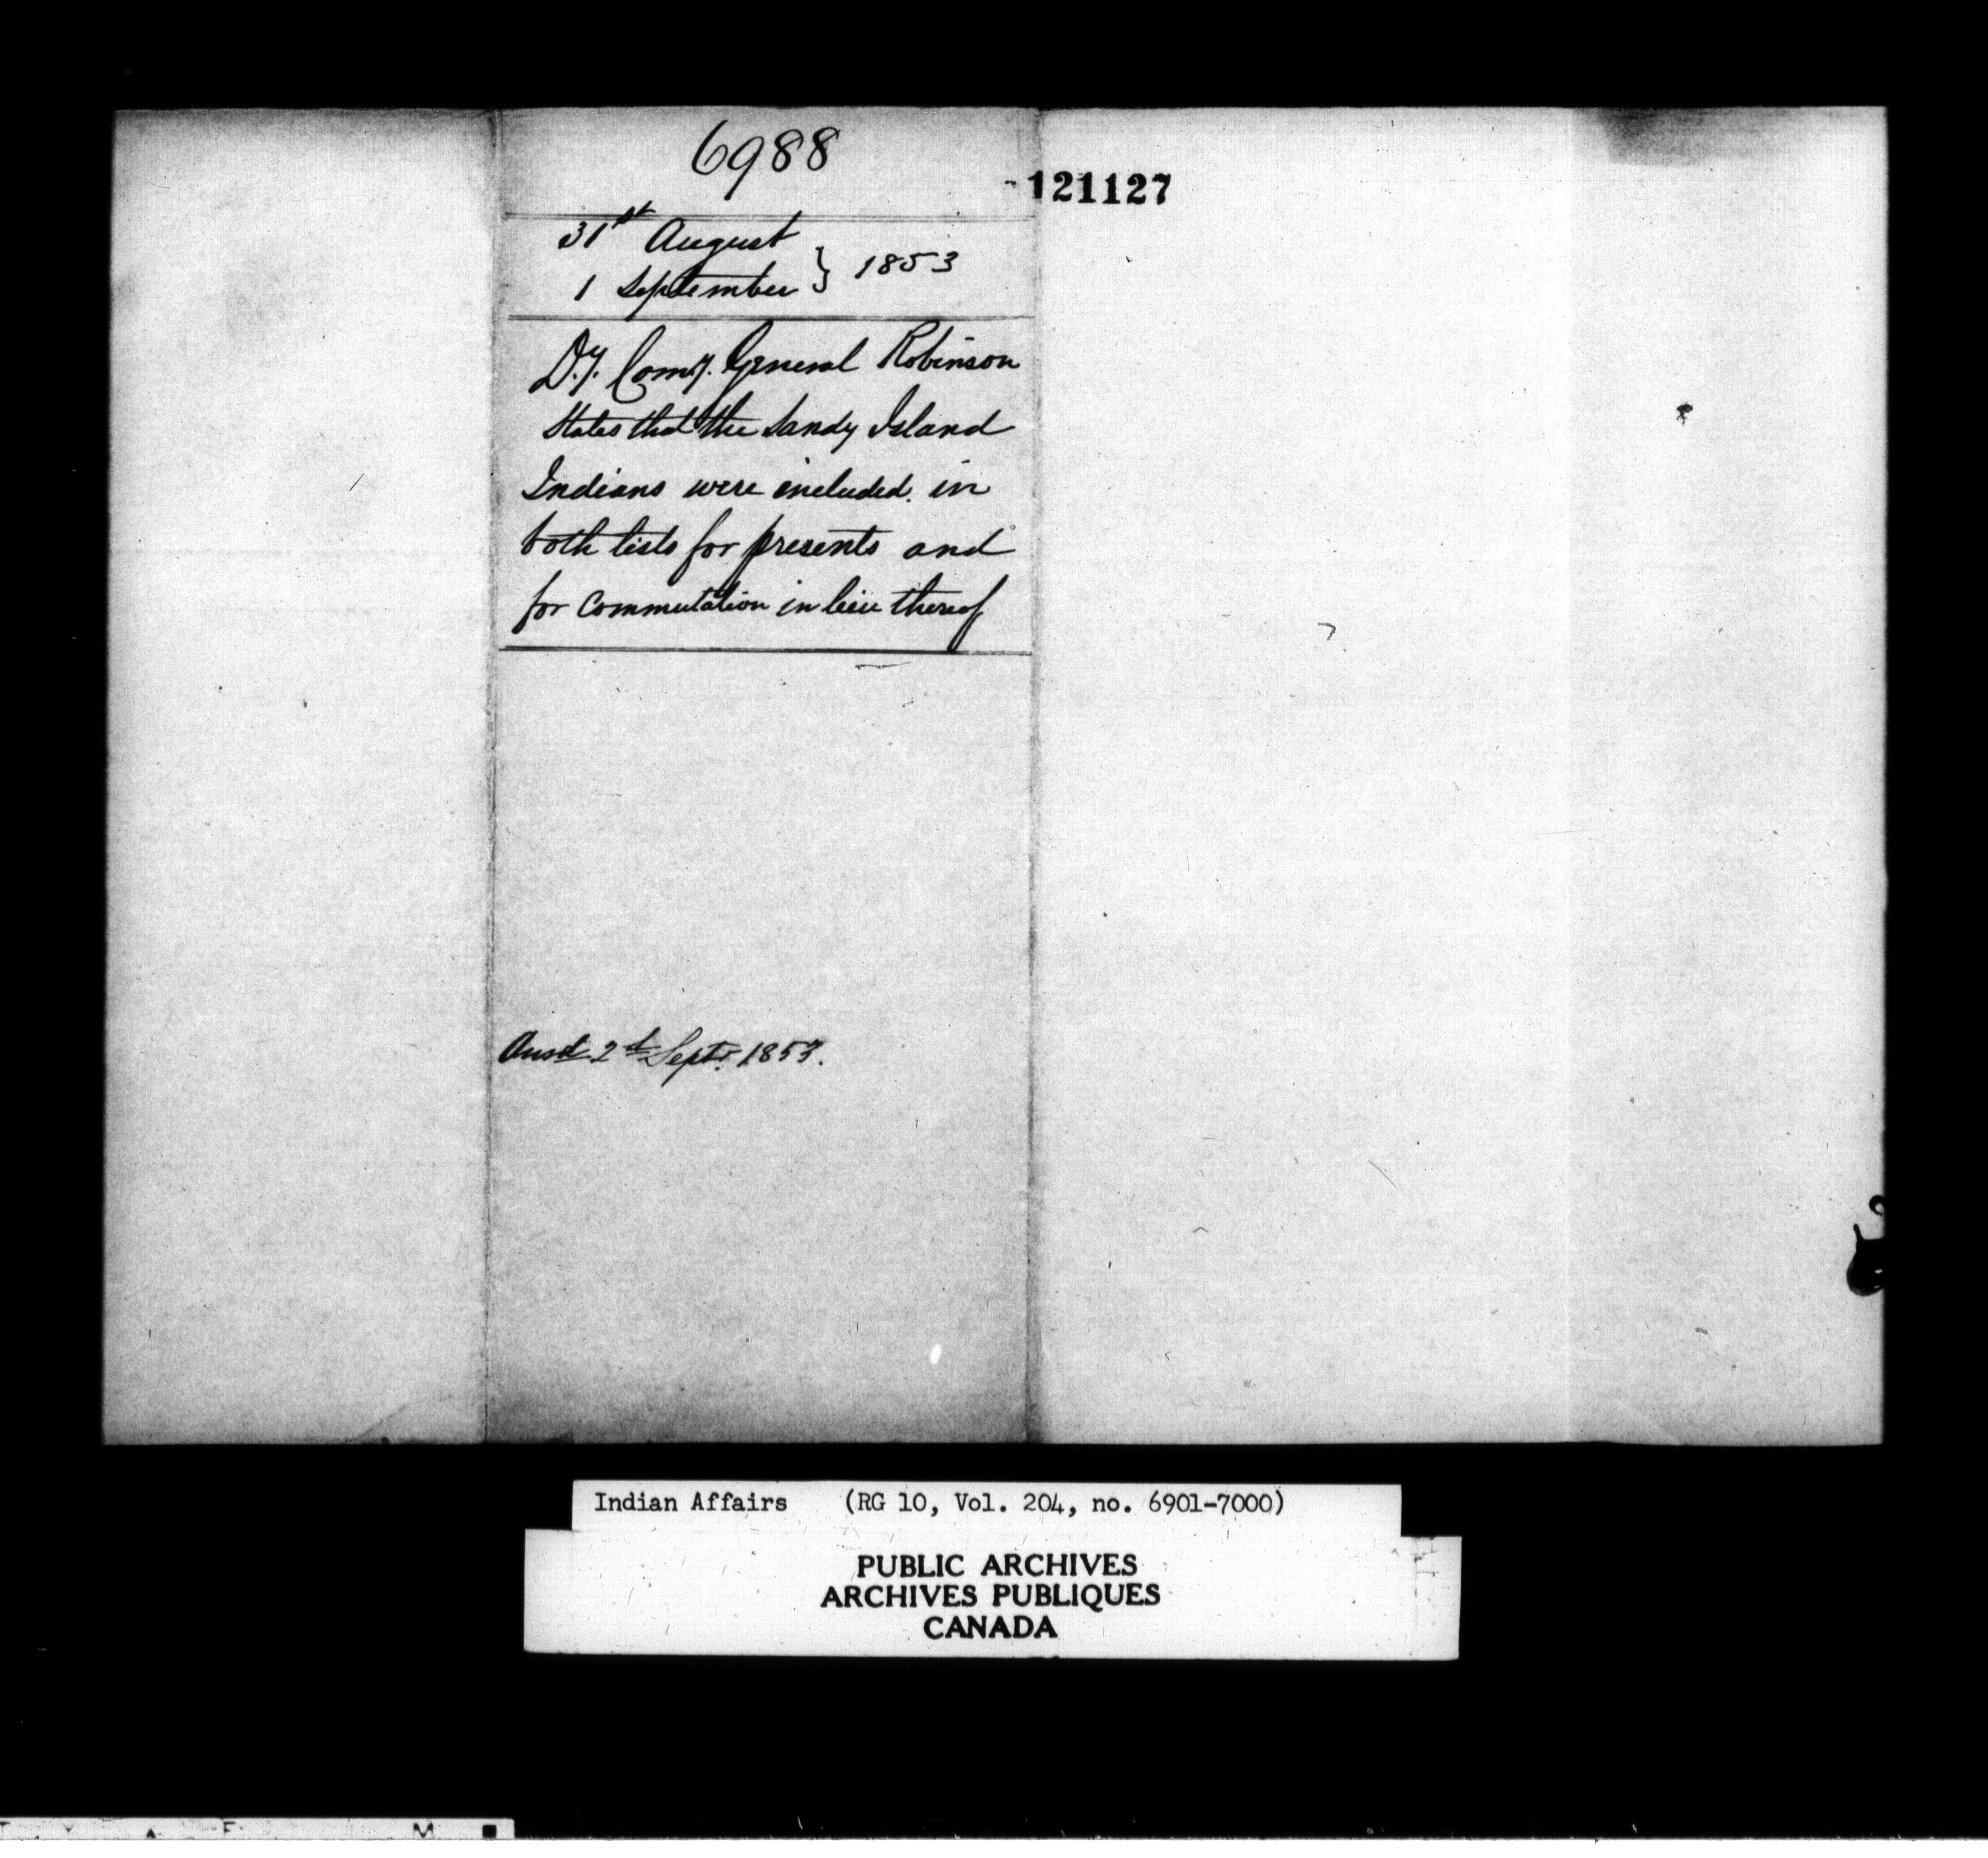 6988
121127
31st August
1 September } 1853
Dy. Comy. General Robinson
States that the Sandy Island
Indians were included in
both lists for presents and
for Commutation in lieu thereof
Ansd 2d Septr. 1853.
Indian Affairs (RG 10, Vol. 204, no. 6901-7000)
PUBLIC ARCHIVES
ARCHIVES PUBLIQUES
CANADA